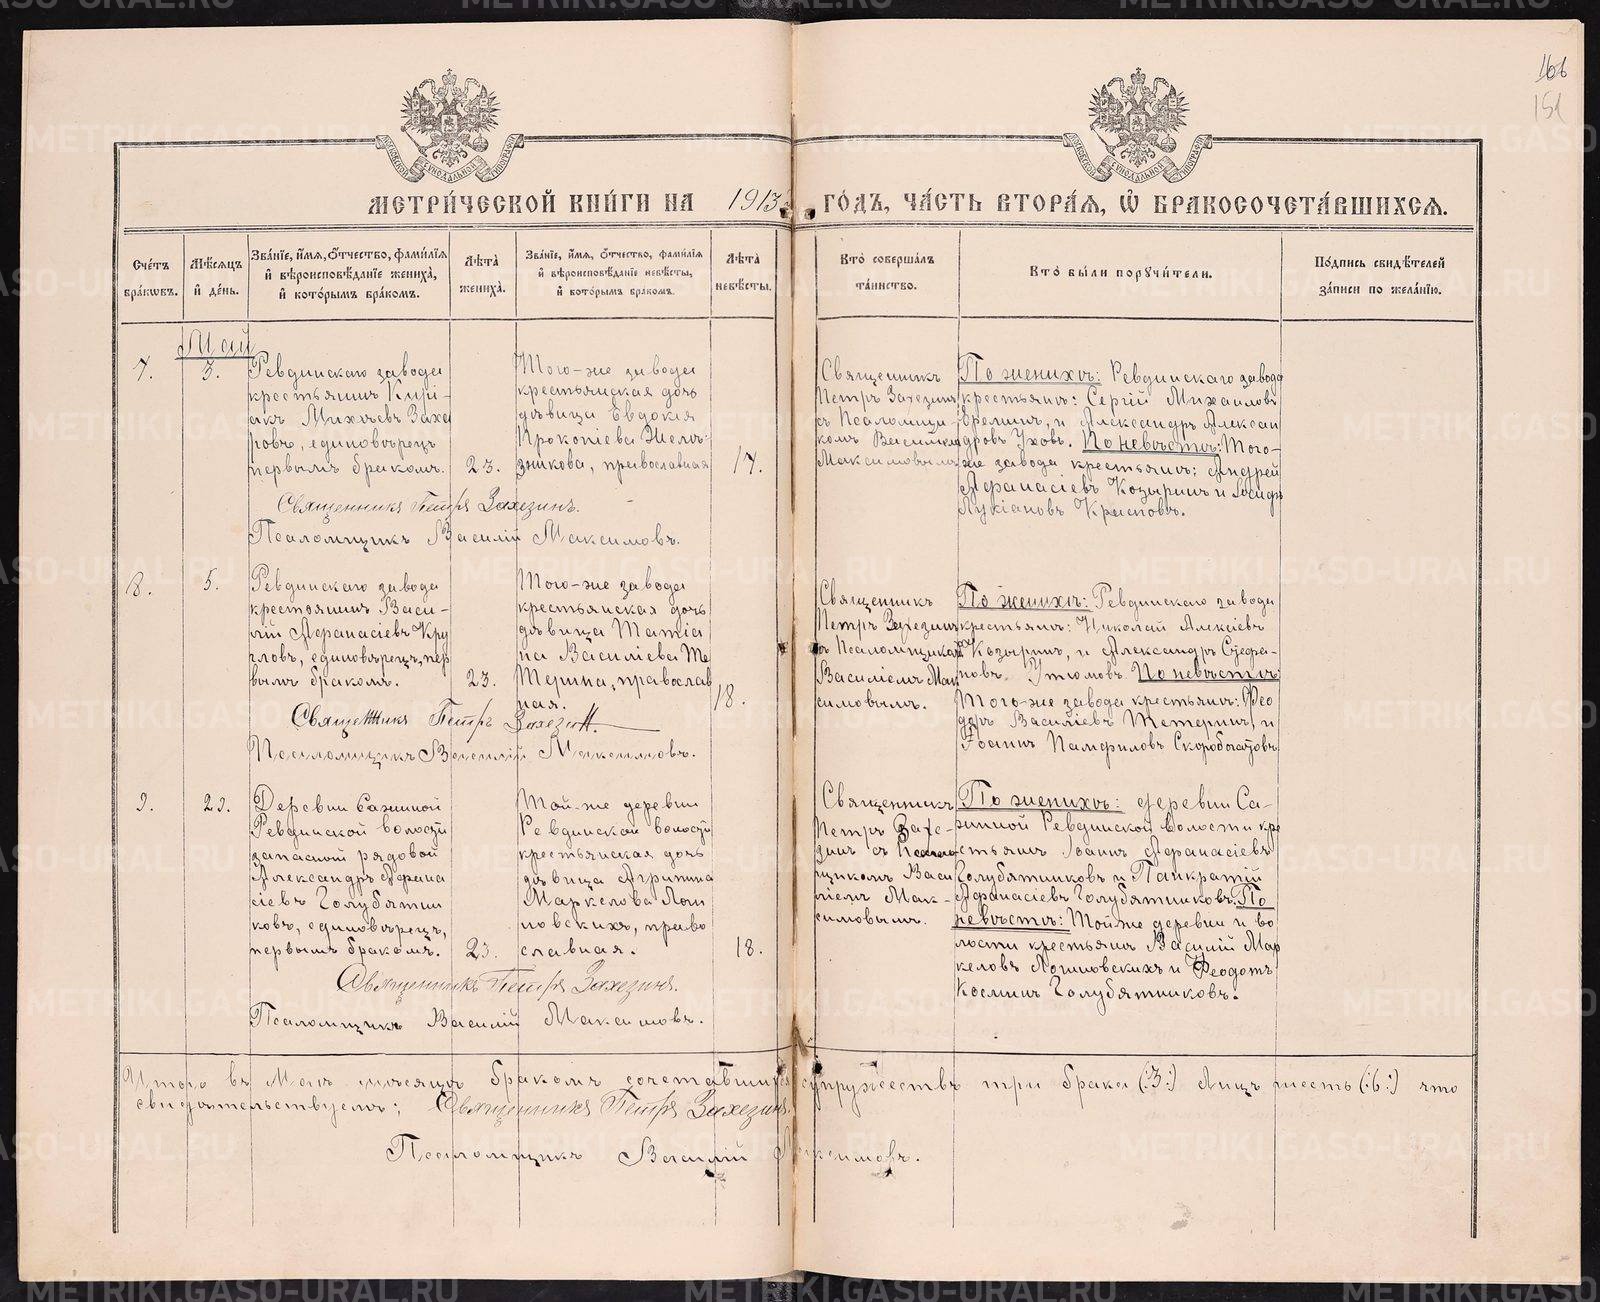 166
151
МЕТРИ́ЧЕСКОЙ КНИ́ГИ НА 1913 ГО́ДЪ, ЧА́СТЬ ВТОРА́Я, Ѿ БРАКОСОЧЕТА́ВШИХСЯ.
Сче́тъ бра́кѡвъ.
Мѣ́сяцъ и҆ де́нь.
Зва́нїе, и҆́мя, ѻ҆́тчество, фами́лїя и҆ вѣроисповѣ́данїе жениха̀, и҆ кото́рымъ бра́комъ.
Лѣ́та жениха̀.
Зва́нїе, и҆́мя, ѻ҆́тчество, фами́лїя и҆ вѣроисповѣ́данїе невѣ́сты, и҆ кото́рымъ бра́комъ.
Лѣ́та невѣ́сты.
Кто̀ соверша́лъ та́инство.
Кто̀ бы́ли порꙋчи́тели.
По́дпись свидѣ́телей за́писи по жела́нїю.
Май
7.
3.
Ревдинскаго завода
крестьянинъ Кирі-
акъ Михѣевъ Заха
ровъ, единовѣрецъ
первымъ бракомъ.
23.
Того-же завода
крестьянская дочь
дѣвица Евдокія
Прокопіева Желѣ-
зникова, православная
17.
Священникъ
Петръ Захезинъ
съ Псаломщи-
комъ Василіемъ
Максимовымъ
По женихѣ: Ревдинскаго завода
крестьяне: Сергій Михаиловъ
и Александръ Алексан
дровъ Уховъ. По невѣстѣ: Того-
же завода крестьяне: Андрей
Афанасіевъ Козыринъ и Іосифъ
Лукіановъ Красновъ.
Священникъ Петръ Захезинъ.
Псаломщикъ Василій Максимовъ.
8.
5.
Ревдинскаго завода
крестьянинъ Васи-
лій Афанасіевъ Кру
гловъ, единовѣрецъ, пер
вымъ бракомъ.
23.
Того-же завода
крестьянская дочь
дѣвица Татіа
на Василіева Те
терина, православ
ная.
18.
Священникъ
Петръ Захезинъ
съ Псаломщикомъ
Василіемъ Мак
симовымъ.
По женихѣ: Ревдинскаго завода
крестьяне: Николай Алексіевъ
Козыринъ, и Александръ Стефа-
новъ Утюмовъ. По невѣстѣ:
Того-же завода крестьяне: Фео
доръ Василіевъ Тетеринъ, и
Іоаннъ Памфиловъ Скоробогатовъ
Священникъ Петръ Захезинъ.
Псаломщикъ Василій Максимовъ.
9.
29.
Деревни Сажиной
Ревдинской волости
запасной рядовой
Александръ Афана
сіевъ Голубятни
ковъ, единовѣрецъ,
первымъ бракомъ.
23.
Той-же деревни
Ревдинской волости
крестьянская дочь
дѣвица Агрипина
Маркелова Логи
новскихъ, право
славная.
18.
Священникъ
Петръ Захе-
зинъ съ Псалом
щикомъ Васи
ліемъ Мак-
симовымъ.
По женихѣ: деревни Са-
жиной Ревдинской волости кре
стьяне Іоаннъ Афанасіевъ
Голубятниковъ и Панкратій
Афанасіевъ Голубятниковъ. По
невѣстѣ: Той-же деревни и во
лости крестьяне Василій Мар
келовъ Логиновскихъ и Феодотъ
Косминъ Голубятниковъ.
Священникъ Петръ Захезинъ.
Псаломщикъ Василій Максимовъ.
Итого въ Маѣ мѣсяцѣ бракомъ сочетавшихся супружествъ три брака (:3:) лицъ шесть (:6:) что
свидѣтельствуемъ; Священникъ Петръ Захезинъ.
Псаломщикъ Василій Максимовъ.
METRIKI.GASO-URAL.RU